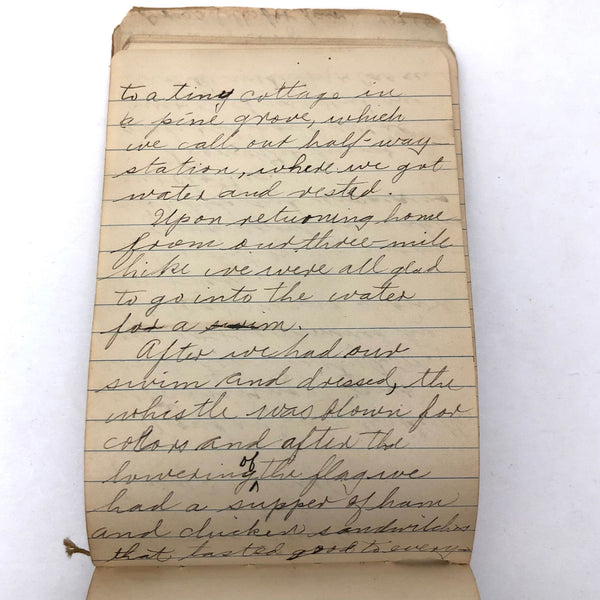 to a tiny cottage in
a pine grove, which
we call our half-way
station, where we got
water and rested.
Upon returning home
from our three-mile
hike we were all glad
to go into the water
for a swim.
After we had our
swim and dressed, the
whistle was blown for
colors and after the
lowering of the flag we
had a supper of ham
and chicken sandwiches
that tasted good to every-